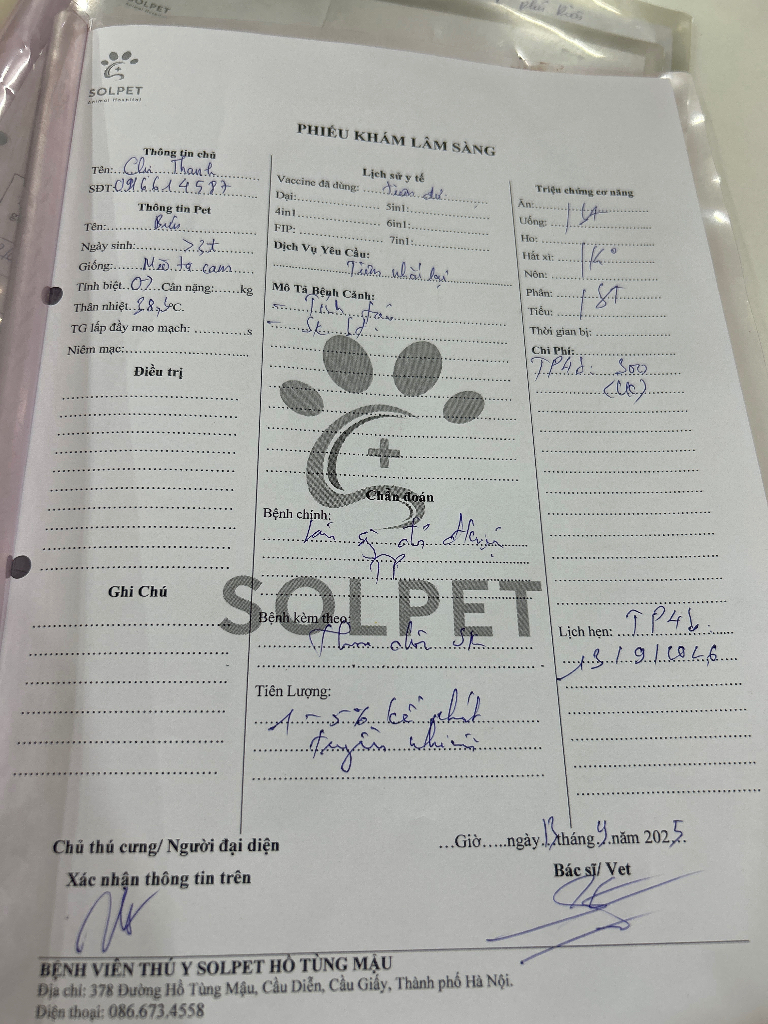 SOLPET
Animal Hospital
PHIẾU KHÁM LÂM SÀNG
Thông tin chủ
Tên: Chị Thanh
SĐT: 0966614587
Thông tin Pet
Tên:
Ngày sinh: >3t
Giống: Mèo ta cam
Tính biệt. Cân nặng: kg
Thân nhiệt. °C.
TG lấp đầy mao mạch: s
Niêm mạc:
Điều trị
Ghi Chú
Lịch sử y tế
Vaccine đã dùng: Tiêm đủ
Dại: 5in1:
4in1 6in1:
FIP: 7in1:
Dịch Vụ Yêu Cầu:
Tiêm nhắc lại
Mô Tả Bệnh Cảnh:
- Tỉnh táo
- SK
Chẩn đoán
Bệnh chính:
TP
SOLPET
Bệnh kèm theo:
Theo dõi SK
Tiên Lượng:
1 - 5% kế phát
truyền nhiễm
Triệu chứng cơ năng
Ăn:
Uống:
Ho:
Hắt xì:
Nôn:
Phân:
Tiểu:
Thời gian bị:
Chi Phí:
TP4d: 300
(CK)
Lịch hẹn: TP4d
13/9/2026
Chủ thú cưng/ Người đại diện
Xác nhận thông tin trên
...Giờ.....ngày 13 tháng 9 năm 2025.
Bác sĩ/ Vet
BỆNH VIỆN THÚ Y SOLPET HỒ TÙNG MẬU
Địa chỉ: 378 Đường Hồ Tùng Mậu, Cầu Diễn, Cầu Giấy, Thành phố Hà Nội.
Điện thoại: 086.673.4558